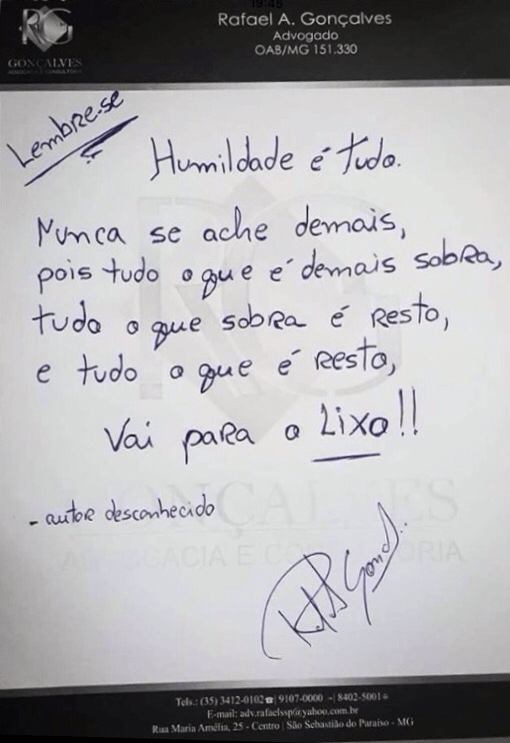 19:45
RG
GONÇALVES
ADVOCACIA E CONSULTORIA
Rafael A. Gonçalves
Advogado
OAB/MG 151.330
Lembre-se
Humildade é tudo.
Nunca se ache demais,
pois tudo o que é demais sobra,
tudo o que sobra é resto,
e tudo o que é resto,
Vai para o Lixo!!
- autor desconhecido
GONÇALVES
ADVOCACIA E CONSULTORIA
Tels.: (35) 3412-0102 | 9107-0000 - | 8402-5001
E-mail: adv.rafaelssp@yahoo.com.br
Rua Maria Amélia, 25 - Centro | São Sebastião do Paraíso - MG